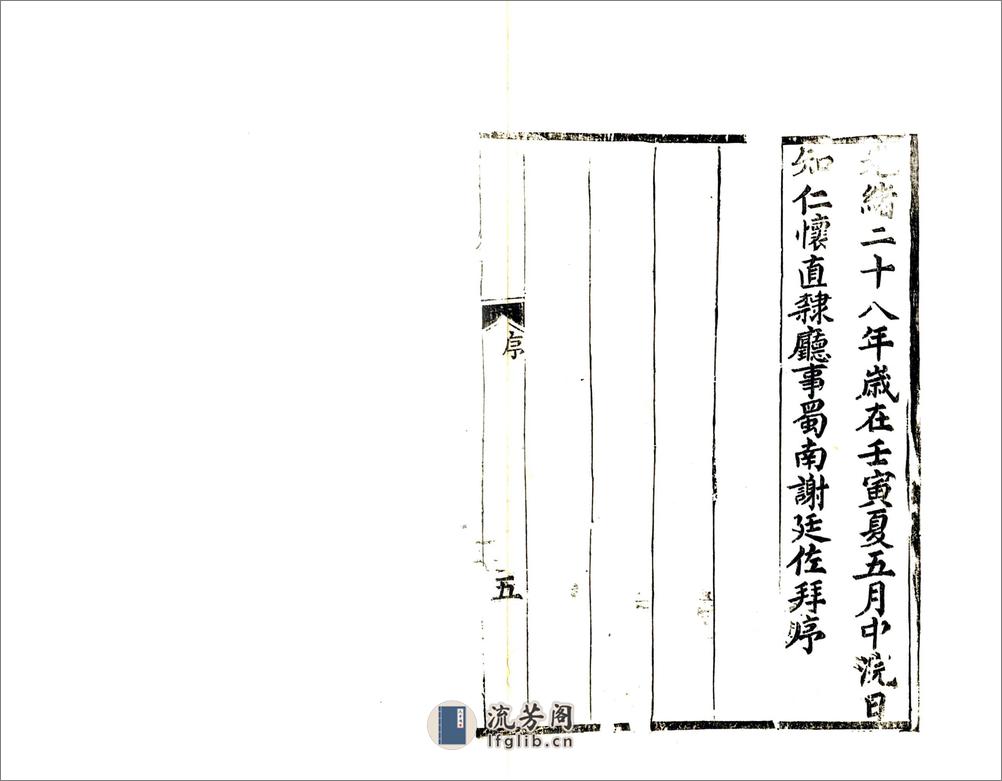 光緒二十八年歲在壬寅夏五月中浣日
知仁懷直隸廳事蜀南謝廷佐拜序
序
五
流芳阁
lfglib.cn